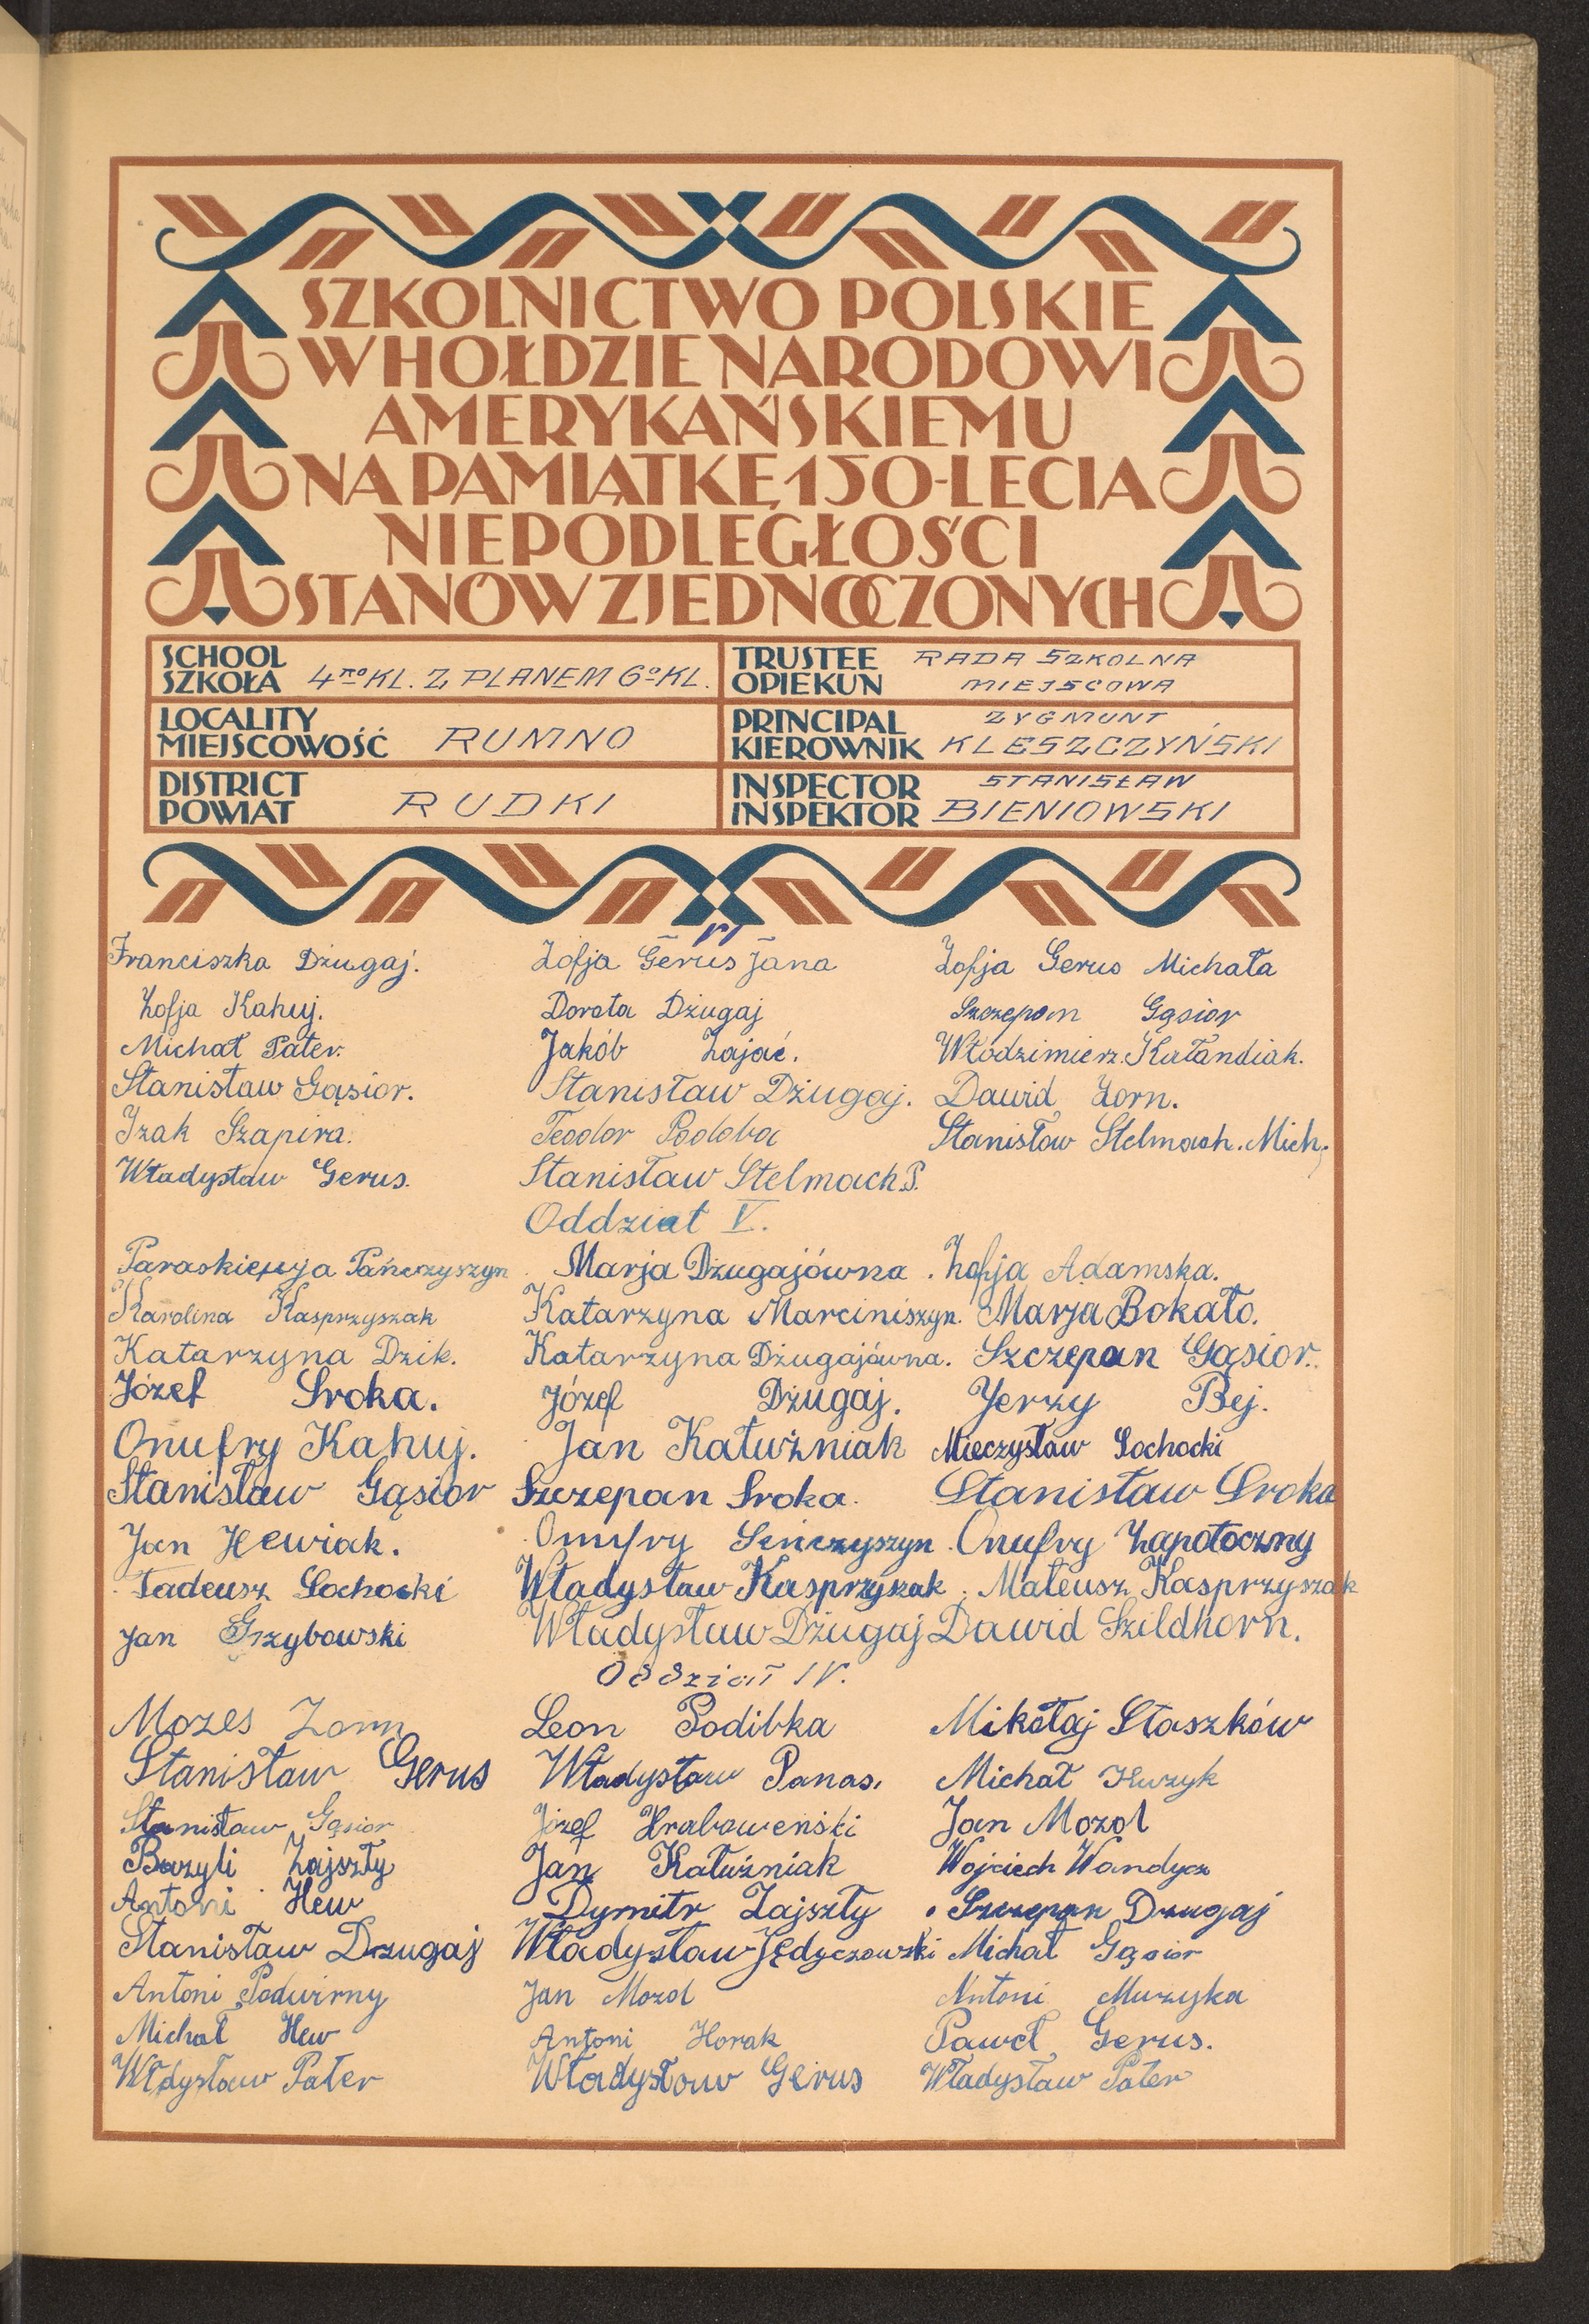 SZKOLNICTWO POLSKIE
W HOŁDZIE NARODOWI
AMERYKAŃSKIEMU
NA PAMIĄTKĘ 150-LECIA
NIEPODLEGŁOŚCI
STANÓW ZJEDNOCZONYCH
SCHOOL
SZKOŁA 4RO KL. Z PLANEM 6O KL.
TRUSTEE RADA SZKOLNA
OPIEKUN MIEJSCOWA
LOCALITY
MIEJSCOWOŚĆ RUMNO
PRINCIPAL ZYGMUNT
KIEROWNIK KLESZCZYŃSKI
DISTRICT
POWIAT RUDKI
INSPECTOR STANISŁAW
INSPEKTOR BIENIOWSKI
VI
Franciszka Dżugaj. Zofja Gerus Jana Zofja Gerus Michała
Zofja Kahuj. Dorota Dżugaj Szczepan Gąsior
Michał Pater. Jakób Zając. Włodzimierz. Kałandiak.
Stanisław Gąsior. Stanisław Dżugaj. Dawid Zorn.
Izak Szapira. Teodor Podoba Stanisław Stelmach. Mich.
Władysław Gerus. Stanisław Stelmach P.
Oddział V.
Paraskiewja Pańczyszyn Marja Dżugajówna. Zofja Adamska.
Karolina Kasprzyszak Katarzyna Marciniszyn. Marja Bokało.
Katarzyna Dzik. Katarzyna Dżugajówna. Szczepan Gąsior.
Józef Sroka. Józef Dżugaj. Jerzy Bej.
Onufry Kahuj. Jan Kałużniak Mieczysław Sochocki
Stanisław Gąsior Szczepan Sroka. Stanisław Sroka
Jan Hewiak. Onufry Seńczyszyn. Onufry Zapotoczny
Tadeusz Sochocki Władysław Kasprzyszak. Mateusz Kasprzyszak
Jan Grzybowski Władysław Dżugaj Dawid Szildhorn.
Oddział IV.
Mozes Zorn Leon Podibka Mikołaj Staszków
Stanisław Gerus Władysław Panas. Michał
Stanisław Gąsior Józef Hraboweński Jan Mozol
Bazyli Zajszły Jan Kałużniak Wojciech Wandycz
Antoni Hew Dymitr Zajszły Szczepan Dzugaj
Stanisław Dzugaj Władysław Jędyczowski Michał Gąsior
Antoni Podwirny Jan Mozol Antoni Muzyka
Michał Hew Antoni Horak Paweł Gerus.
Włdysław Pater Władysław Gerus Władysław Pater